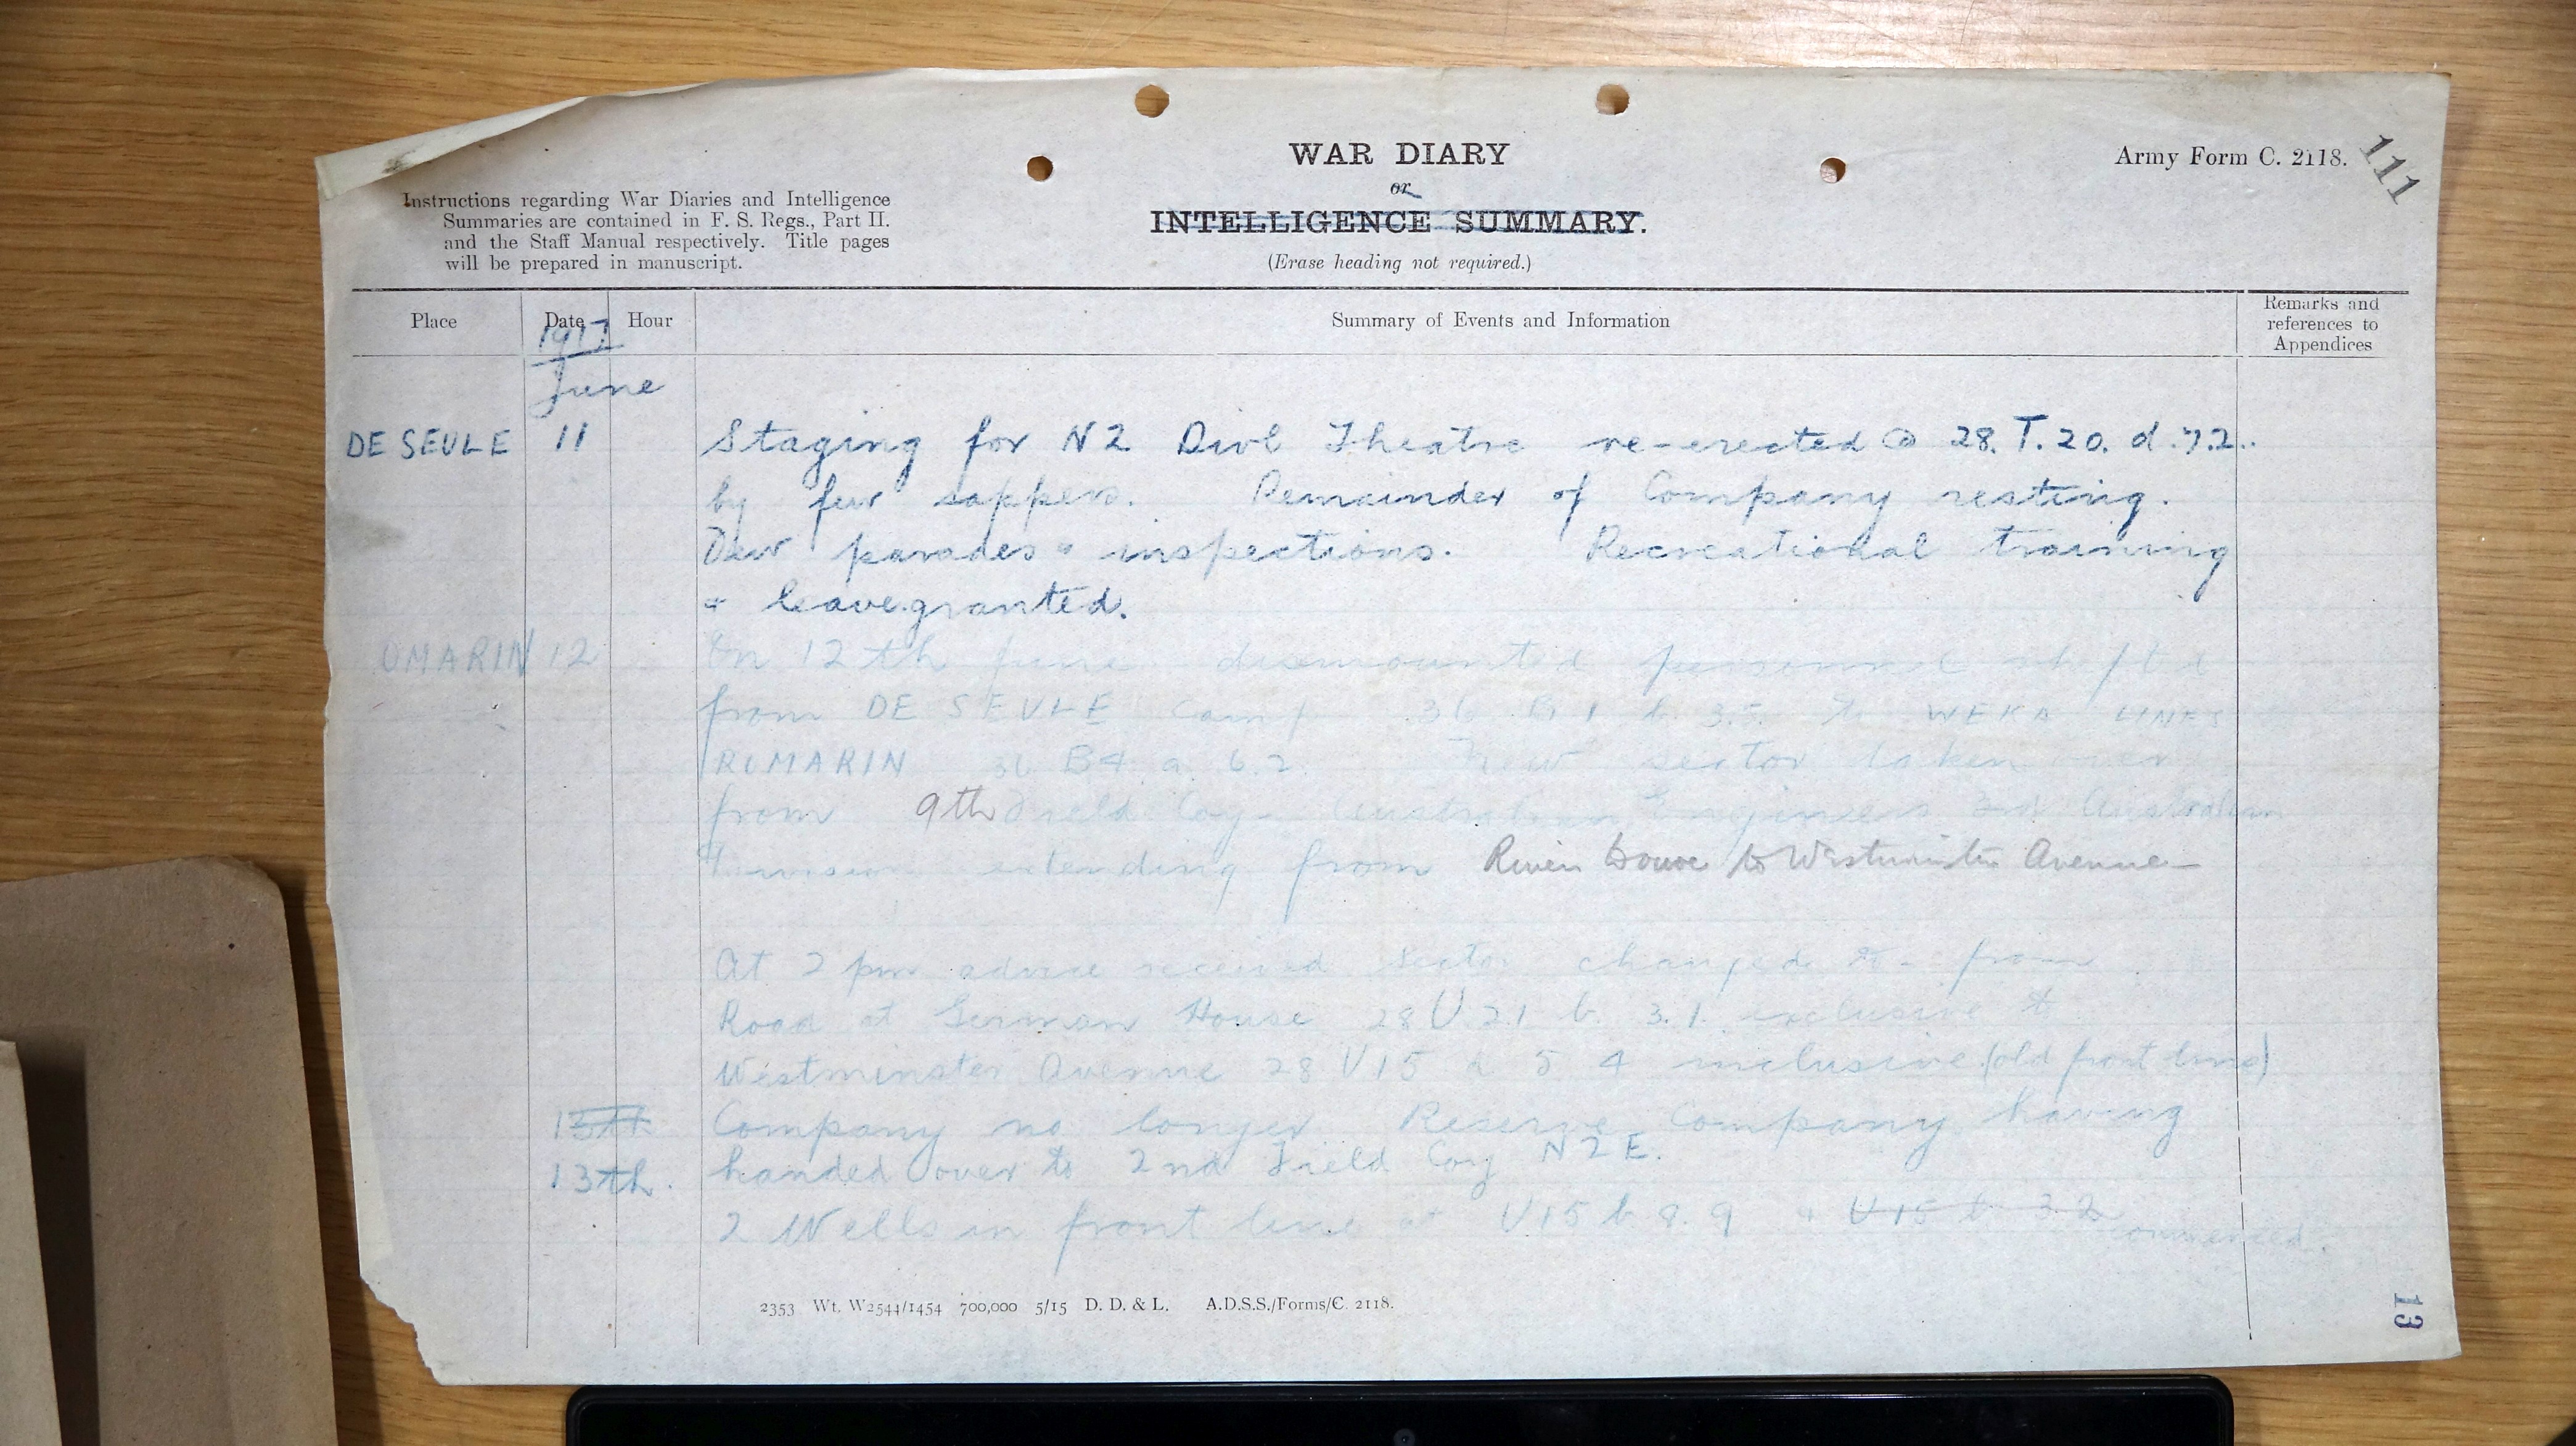 WAR DIARY
or
INTELLIGENCE SUMMARY.
(Erase heading not required.)
Army Form C. 2118.
111
Instructions regarding War Diaries and Intelligence
Summaries are contained in F. S. Regs., Part II.
and the Staff Manual respectively. Title pages
will be prepared in manuscript.
Place Date Hour Summary of Events and Information Remarks and references to Appendices
1917
June
DE SEULE 11 Staging for NZ Divl Theatre re-erected @ 28. T. 20. d. 7.2.
by few sappers. Remainder of Company resting.
Few parades & inspections. Recreational training
& leave granted.
OMARIN 12 On 12th June dismounted personnel shifted
from DE SEULE Camp 36 B 1 b 3.5. to WEKA LINES
ROMARIN 36 B4 a. 6.2. New sector taken over
from 9th Field Coy Australian Engineers 3rd Australian
Division extending from River Douve to Westminster Avenue
At 2 pm advice received sector changed to - from
Road at German House 28 U 21 b. 3.1. exclusive to
Westminster Avenue 28 U15 5 4 inclusive (old front line)
13th Company no longer Reserve Company having
13th. handed over to 2nd Field Coy NZE.
2 Wells in front line at U15 b 8.9 & U15 b 3.2 commenced.
2353 Wt. W2544/1454 700,000 5/15 D. D. & L. A.D.S.S./Forms/C. 2118.
13